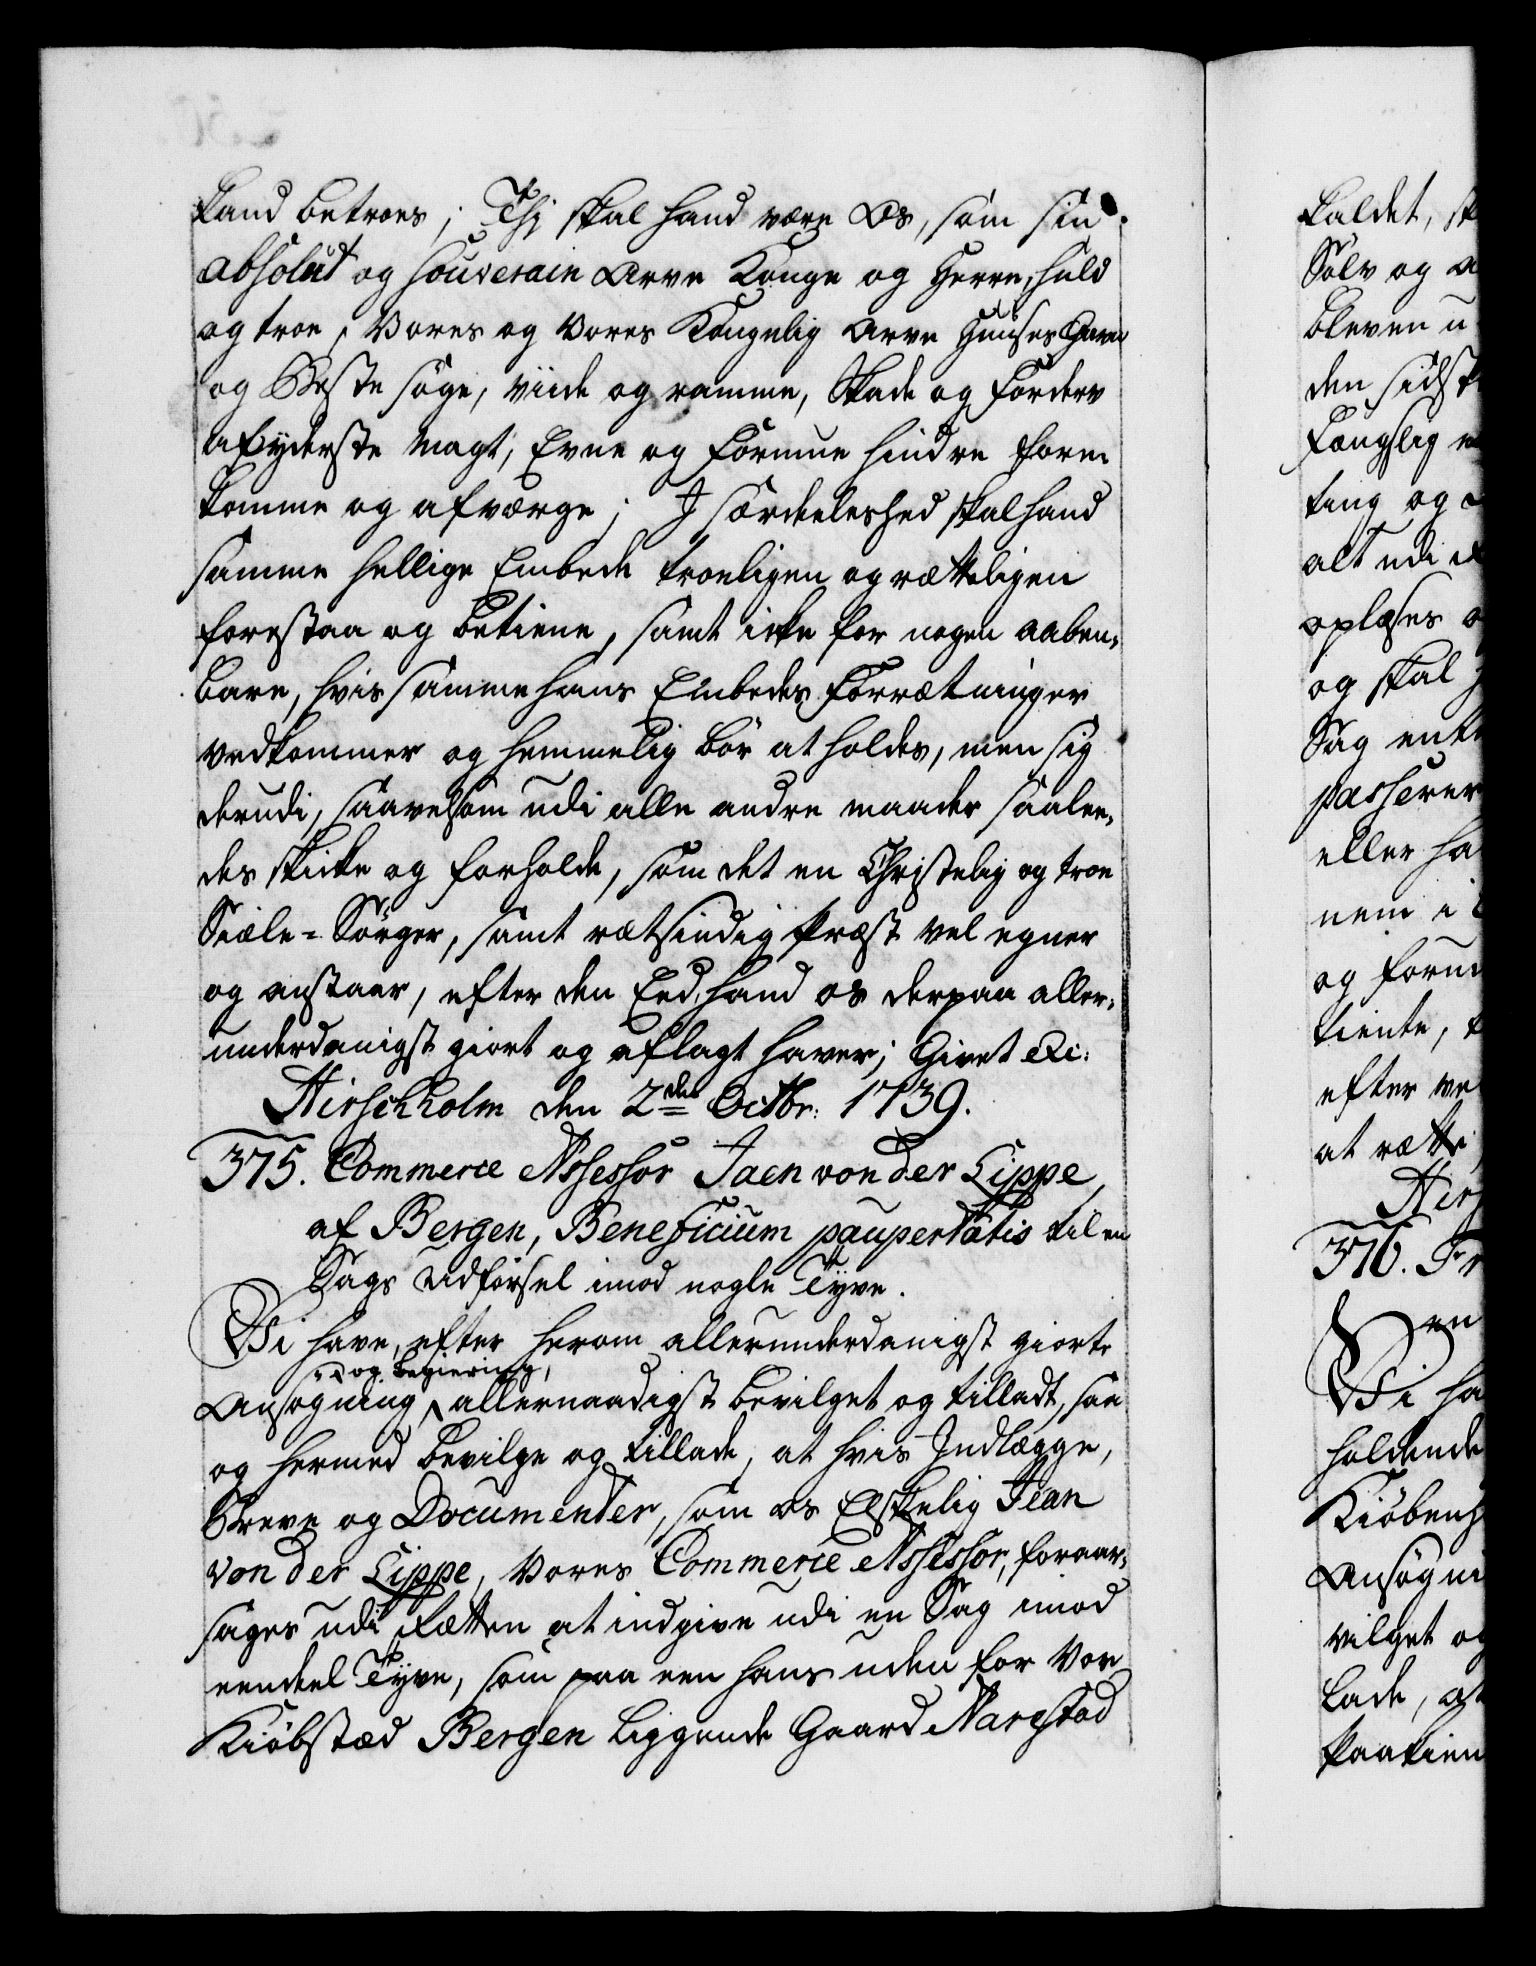 kand betroes; Thj skal hand være Os, som sin
absolut og souverain Arve Konge og Herre, huld
og troe, Vores og Vores Kongelig Arve Huuses Gavn
og Beste søge, viide og ramme, Skade og Forderv
af yderste Magt, Evne og Formue hindre fore-
komme og afværge; I særdeeleshed skal hand
samme hellige Embede troeligen og rætteligen
forestaa og betiene, samt icke for nogen aaben-
bare, hvis samme hans Embedes Forrætninger
vedkommer og hemmelig bør at holdes, men sig
derudi, saavelsom udi alle andre maader saalee-
des skicke og forholde, som det en Christelig og troe
Siæle-Sørger, samt rætsindig Præst vel egner
og anstaaer, efter den Eed, hand os derpaa aller-
underdanigst giort og aflagt haver; Givet &c:
Hirschholm den 2den Octbr: 1739.
375. Commerce Assessor Jaen von der Lippe,
af Bergen, Beneficium paupertatis til en
Sags Udførsel imod nogle Tyve.
Vi have, efter herom allerunderdanigst giorte
og begiering,
Ansøgning allernaadigst bevilget og tilladt, saa
og hermed bevilge og tillade, at hvis Indlægge,
Breve og Documenter, som os Elskelig Jean
von der Lippe, Vores Commerce Assessor, foraar-
sages udi Rætten at indgive udi en Sag imod
eendeel Tyve, som paa een hans uden for Vor
Kiøbstæd Bergen liggende Gaard Narestad
kaldet, sk
Sølv og a
bleven u
den sidst
Fængslig
ting og
alt udi
oplæses
og skal
Sag entt
passerer
eller ha
nem i
og form
tiente,
efter ve
at rætte
Hirs
376. Fr
en
Vi ha
holdende
Kiøbenh
Ansøgni
vilget og
lade, at
paatien